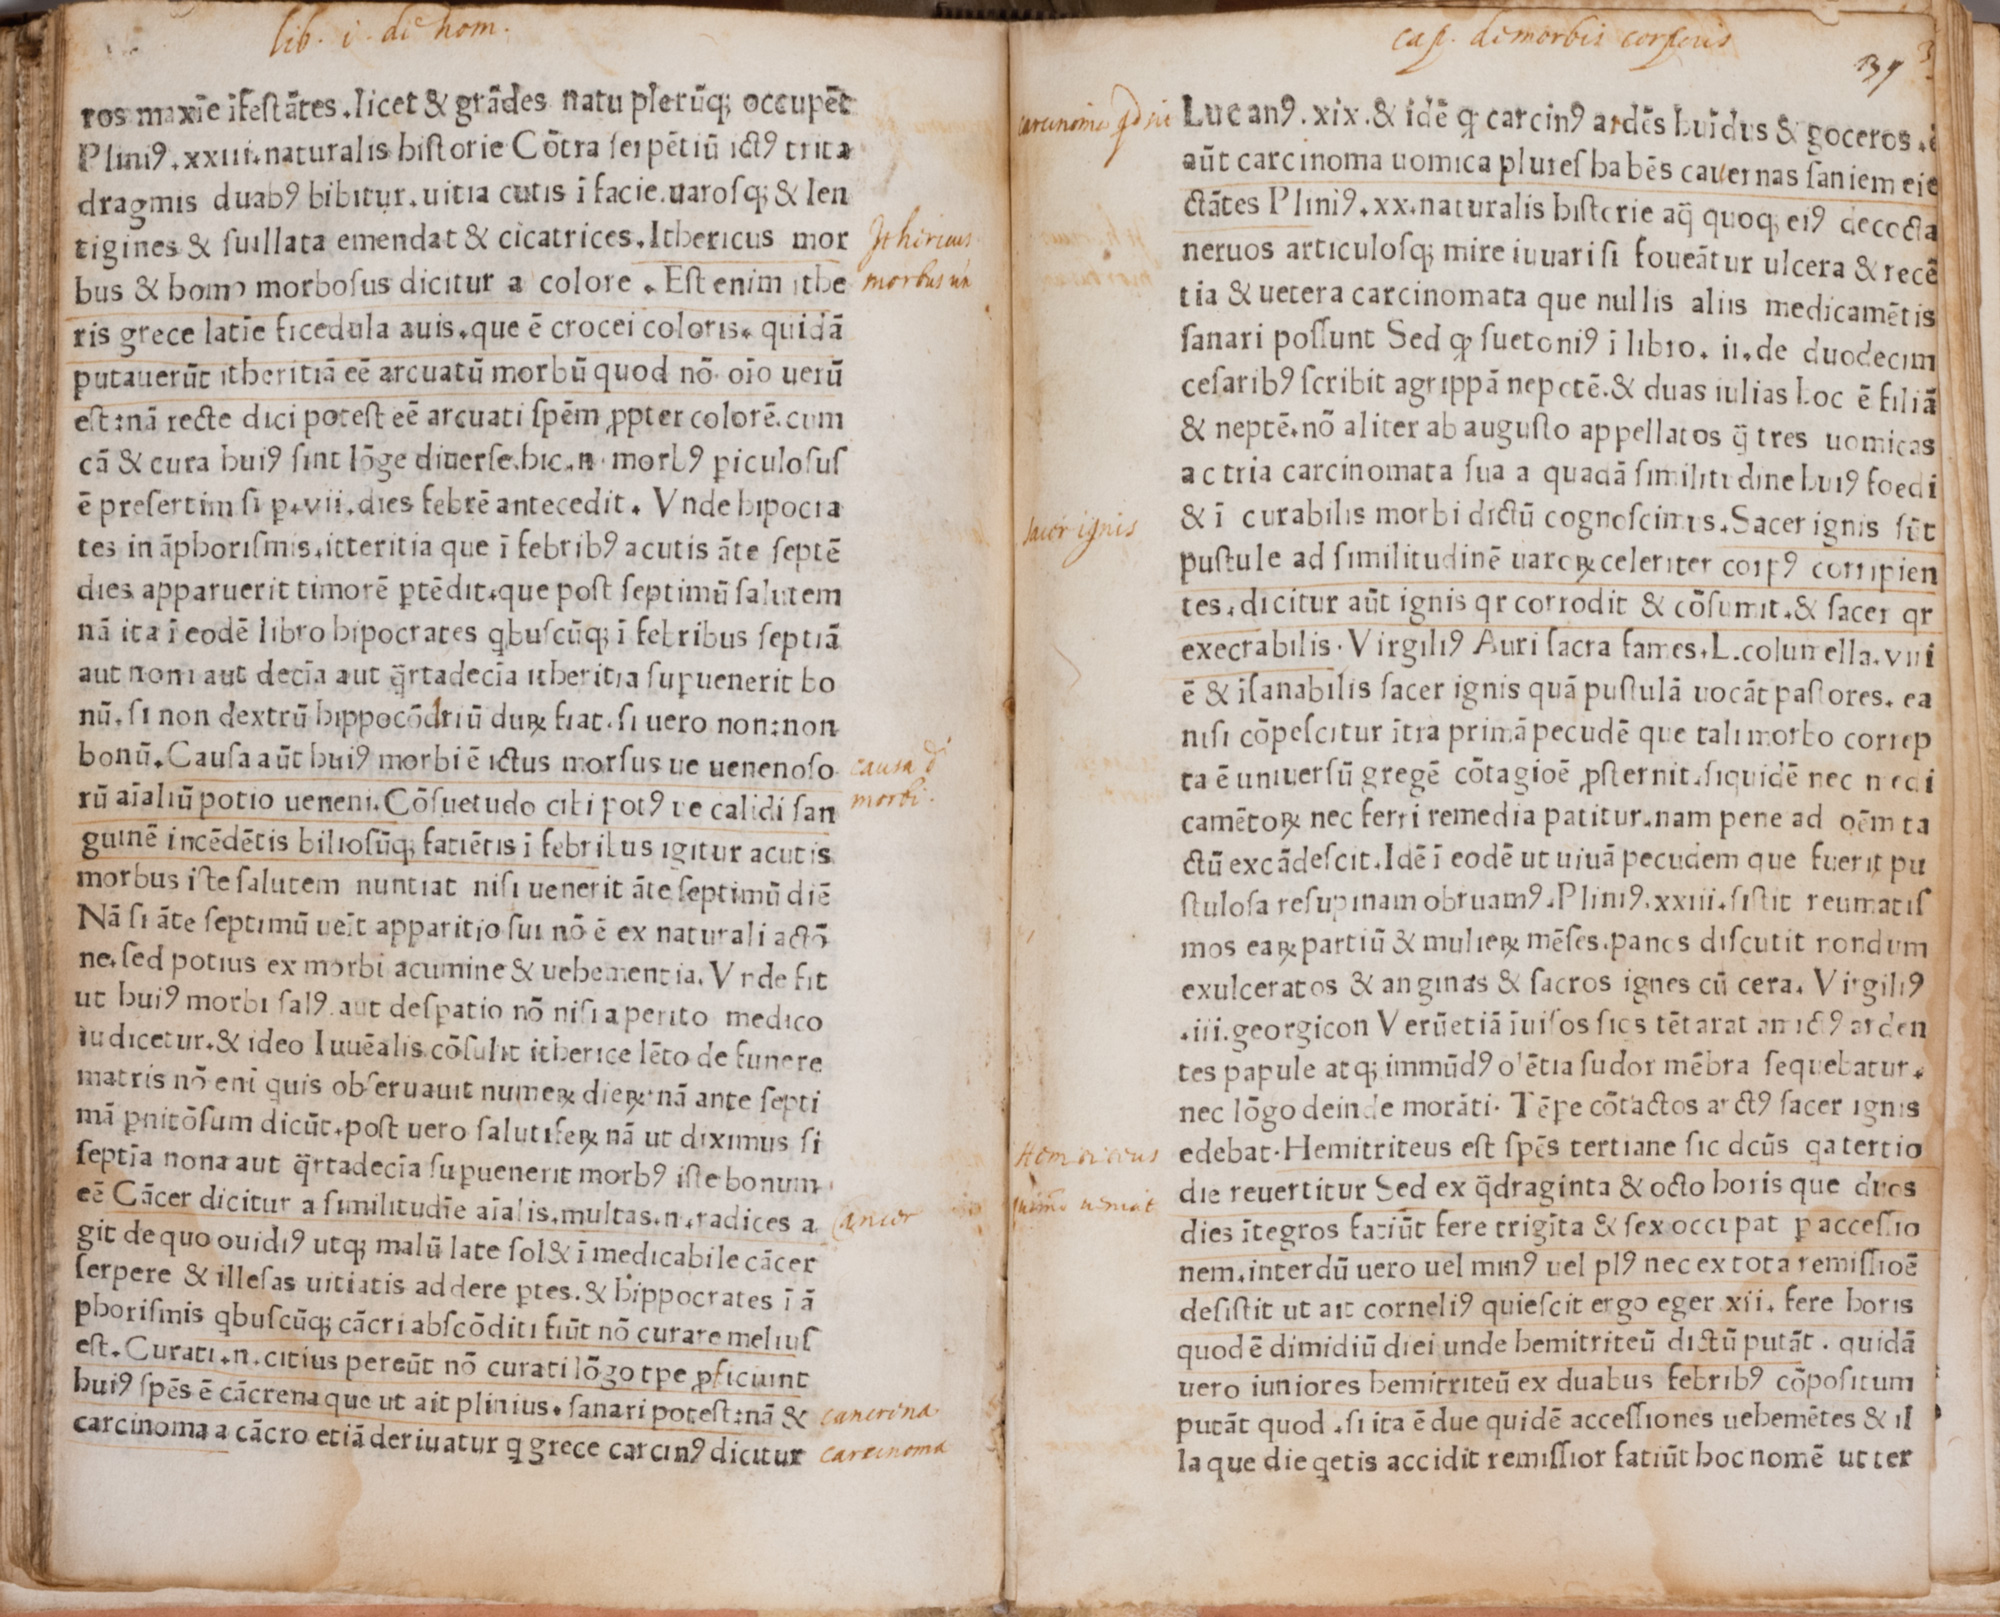 lib. i. de hom.
ros maxīe īfestātes. licet & grādes natu plerūq; occupēt
Pliniꝰ. xxiii. naturalis historie Cōtra serpētiū ictꝰ trita
dragmis duabꝰ bibitur. uitia cutis ī facie. uarosq; & len
tigines & suillata emendat & cicatrices. Ithericus mor
bus & homo morbosus dicitur a colore. Est enim ithe
ris grece latīe ficedula auis. que ē crocei coloris. quidā
putauerūt itheritiā eē arcuatū morbū quod nō oīo uerū
est: nā recte dici potest eē arcuati spēm ꝓpter colorē. cum
cā & cura huiꝰ sint lōge diuerse. hic. n. morbꝰ ꝑiculosus
ē presertim si ꝑ. vii. dies febrē antecedit. Vnde hipocra
tes in āphorismis. itteritia que ī febribꝰ acutis āte septē
dies apparuerit timorē ꝑtēdit. que post septimū salutem
nā ita ī eodē libro hipocrates qbuscūq; ī febribus septiā
aut noni aut decīa aut q̄rtadecīa itheritia suꝑuenerit bo
nū. si non dextrū hippocōdriū duꝝ fiat. si uero non: non
bonū. Causa aūt huiꝰ morbi ē ictus morsus ue uenenoso
rū aīaliū potio ueneni. Cōsuetudo cibi potꝰ ue calidi san
guinē incēdētis biliosūq; fatiētis ī febribus igitur acutis
morbus iste salutem nuntiat nisi uenerit āte septimū diē
Nā si āte septimū ueīt apparitio sui nō ē ex naturali actō
ne. sed potius ex morbi acumine & uehementia. Vnde fit
ut huiꝰ morbi salꝰ aut despatio nō nisi a perito medico
iudicetur. & ideo Iuuēalis cōsulit itherice lēto de funere
matris nō enī quis obseruauit numeꝝ dieꝝ nā ante septi
mā ꝑnitōsum dicūt. post uero salutifeꝝ nā ut diximus si
septīa nona aut q̄rtadecīa suꝑuenerit morbꝰ iste bonum
eē Cācer dicitur a similitudīe aīalis. multas. n. radices a
git de quo ouidiꝰ utq; malū late sol& ī medicabile cācer
serpere & illesas uitiatis addere ꝑtes. & hippocrates ī ā
phorismis qbuscūq; cācri abscōditi fiūt nō curare melius
est. Curati. n. citius pereūt nō curati lōgo tpe ꝓficiunt
huiꝰ spēs ē cācrena que ut ait plinius. sanari potest: nā &
carcinoma a cācro etiā deriuatur q grece carcinꝰ dicitur
Ithericus
morbus
causa
morbi.
Cancer
cancrena
carcinoma
cap. de morbis corporis
Lucanꝰ. xix. & idē ꝙ carcinꝰ ardēs huīdus & goceros.
aūt carcinoma uomica plures habēs cauernas saniem eie
ctātes Pliniꝰ. xx. naturalis historie aq̄ quoq; eiꝰ decocta
neruos articulosq; mire iuuari si foueātur ulcera & recē
tia & uetera carcinomata que nullis aliis medicamētis
sanari possunt Sed ꝙ suetoniꝰ ī libro. ii. de duodecim
cesaribꝰ scribit agrippā nepotē. & duas iulias hoc ē filiā
& neptē. nō aliter ab augusto appellatos q̄ tres uomicas
ac tria carcinomata sua a quadā similitudine huiꝰ foedi
& ī curabilis morbi dictū cognoscimus. Sacer ignis sūt
pustule ad similitudinē uaroꝝ celeriter corpꝰ corripien
tes. dicitur aūt ignis qr corrodit & cōsumit. & sacer qr
execrabilis. Virgiliꝰ Auri sacra fames. L. columella. viii
ē & īsanabilis sacer ignis quā pustulā uocāt pastores. ea
nisi cōpescitur ītra primā pecudē que tali morbo correp
ta ē uniuersū gregē cōtagioē ꝓsternit. siquidē nec medi
camētoꝝ nec ferri remedia patitur. nam pene ad oēm ta
ctū excādescit. Idē ī eodē ut uiuā pecudem que fuerit pu
stulosa resupinam obruamꝰ. Pliniꝰ. xxiii. sistit reumatis
mos eaꝝ partiū & mulieꝝ mēses. panos discutit nondum
exulceratos & anginas & sacros ignes cū cera. Virgiliꝰ
.iii. georgicon Verūetiā īuisos sios tētarat amictꝰ arden
tes papule atq; immūdꝰ olētia sudor mēbra sequebatur.
nec lōgo deinde morāti. Tēpe cōtactos arctꝰ sacer ignis
edebat. Hemitriteus est spēs tertiane sic dcūs qa tertio
die reuertitur Sed ex q̄draginta & octo horis que duos
dies ītegros fatiūt fere trigīta & sex occupat ꝑ accessio
nem. interdū uero uel minꝰ uel plꝰ nec ex tota remissioē
desistit ut ait corneliꝰ quiescit ergo eger xii. fere horis
quod ē dimidiū diei unde hemitriteū dictū putāt. quidā
uero iuniores hemitriteū ex duabus febribꝰ cōpositum
putāt quod. si ita ē due quidē accessiones uehemētes & il
la que die qetis accidit remissior fatiūt hoc nomē ut ter
carcinoma
sacer ignis